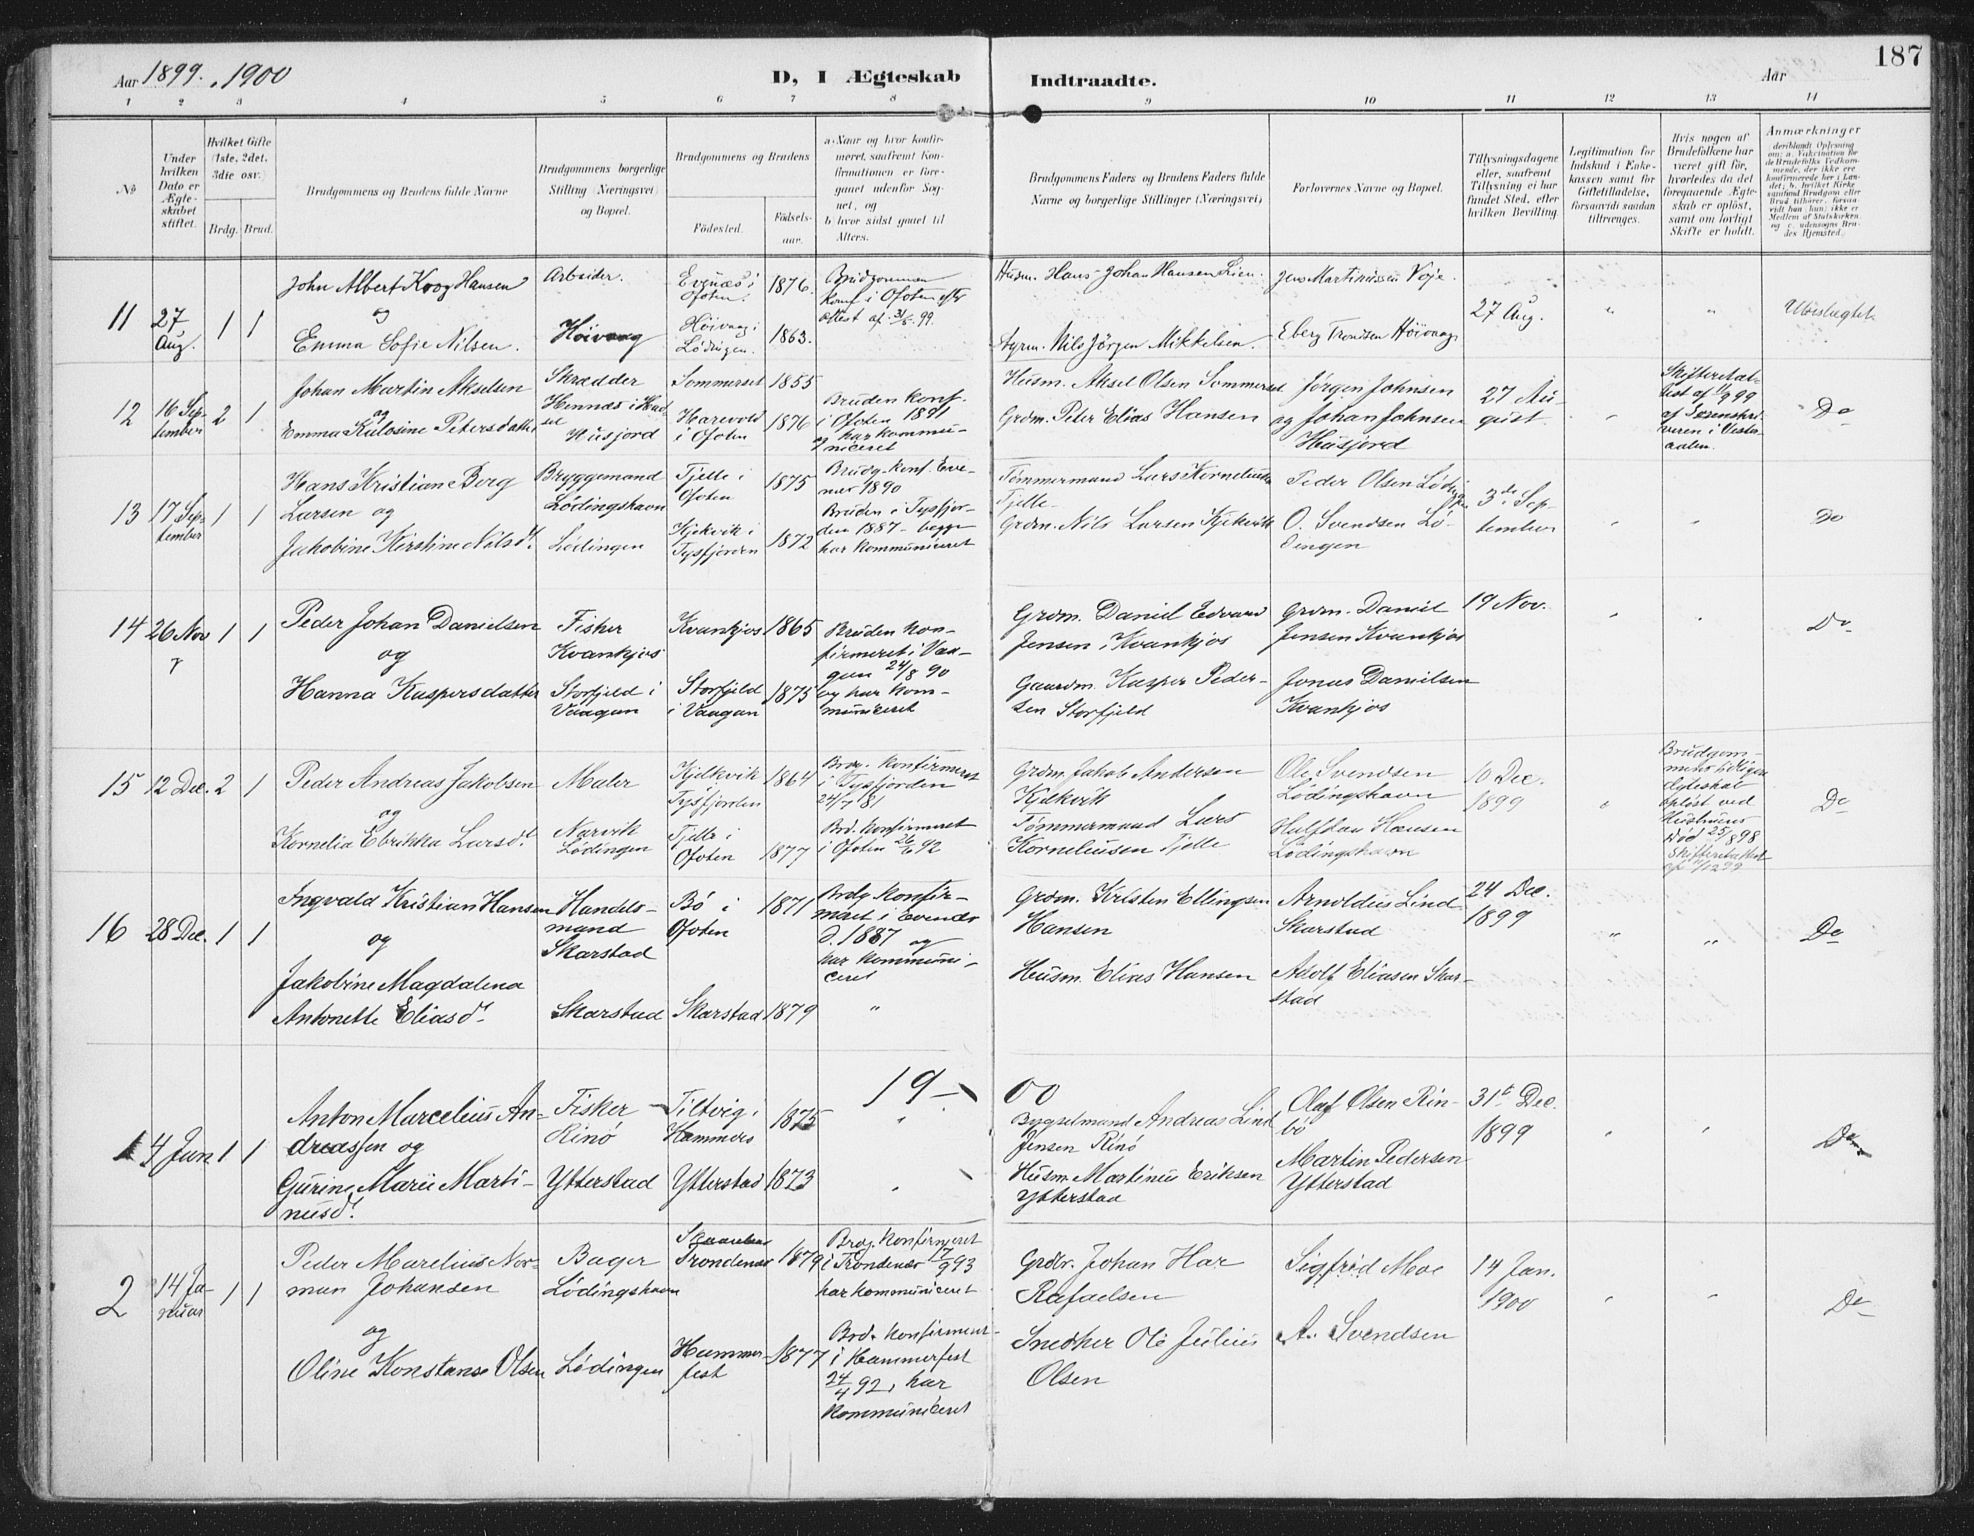 187
Aar 1899. 1900
D, I Ægteskab Indtraadte.
Aar
1 2 3 4 5 6 7 8 9 10 11 12 13 14
No
Under hvilken Dato er Ægteskabet stiftet.
Hvilket Gifte (1ste, 2det, 3die osv.)
Brdg. Brud.
Brudgommens og Brudens fulde Navne
Brudgommens borgerlige Stilling (Næringsvei) og Bopæl.
Brudgommens og Brudens
Födested.
Födsels-aar.
a) Naar og hvor konfirmeret, saafremt Konfirmationen er foregaaet udenfor Sognet, og
b) hvor sidst gaaet til Alters.
Brudgommens Faders og Brudens Faders fulde Navne og borgerlige Stillinger (Næringsvei)
Forlovernes Navne og Bopæl.
Tillysningsdagene eller, saafremt Tillysning ei har fundet Sted, efter hvilken Bevilling
Legitimation for Indskud i Enkekassen samt for Giftetilladelse, forsaavidt saadan tiltrænges.
Hvis nogen af Brudefolkene har været gift før, hvorledes da det foregaaende Ægteskab er opløst, samt om lovligt Skifte er holdt.
Anmærkninger
11
27 Aug.
1 1
John Albert Krog Hansen
og
Emma Sofie Nilsen.
Arbeider.
Høivaag
Evenæs i Ofoten.
1876.
Høivaag i Lödingen.
1863.
Brudgommen
Konf. i Ofoten efter
Attest af 31/5 99.
Husm. Hans Johan Hansen Lien.
Nils Jörgen Mikkelsen.
Jens Martinussen Voje.
Eberg Trondsen Höivaag
27 Aug.
Ubeslægtet.
12
16 September
2 1
Johan Martin Akselsen
og
Emma Kulosine Petersdatter
Skrædder
Hennæs i Hadsel
Husjord
Sommerset
1855
Harevold i Ofoten
1876
Bruden konf.
i Ofoten 1891
og har kommuniceret
Husm. Aksel Olsen Sommerset
Grdm. Peter Elias Hansen
Jørgen Johnsen
og Johan Johnsen
Husjord
27 August.
Skifteretattest af 1/9 99
af Sorenskriveren i Vesteraalen.
Do
13
17 September
1 1
Hans Kristian Berg
Larsen og
Jakobine Kirstine Nilsd.
Bryggemand
Lødingshavn
Lødingen
Fjelle i Ofoten
1875
Kjelkvik i Tysfjorden
1872
Brudg. konf. Evenes 1890
Bruden i Tysfjorden 1887 - begge
har kommuniceret
Tømmermand Lars Korneliussen
Fjelle
Grdm. Nils Larsen Kjelkvik
Peder Olsen Lødingen
O. Svendsen Lødingen
3de September
Do
14
26 Nov
1 1
Peder Johan Danielsen
og
Hanna Kaspersdatter
Fisker
Kvankjos
Storfjeld i Vaagan
Kvankjos
1865
Storfjeld i Vaagan
1875
Bruden konfirmeret i Vaagan 24/8 90
og har kommuniceret
Grdm. Daniel Edvard
Jensen i Kvankjos
Gaardm. Kasper Pedersen Storfjeld
Grdm. Daniel
Jensen Kvankjos
Jonas Danielsen
Kvankjos
19 Nov.
Do
15
12 Dec.
2 1
Peder Andreas Jakobsen
og
Kornelia Ebrikka Larsd.
Maler
Narvik
Lødingen
Kjelkvik
Tysfjorden
1864
Fjelle i Ofoten
1877
Brdg. konfirmeret
i Tysfjorden
24/7 81
Brd. konfirmeret
i Ofoten 26/6 92
Grdm. Jakob Andersen
Kjelkvik
Tømmermand Lars
Korneliusen Fjelle
Ole Svendsen
Lødingshavn
Halfdan Hansen
Lødingshavn
10 Dec.
1899
Brudgommens tidligere
Ægteskab
opløst ved
Hustruens
Død 25/ 898
Skifteretattest
Do
16
28 Dec.
1 1
Ingvald Kristian Hansen
og
Jakobine Magdalena
Antonette Eliasd.
Handelsmand
Skarstad
Skarstad
Bø i Ofoten
1871
Skarstad
1879
Brdg konfirmeret i Evenes
1887 og
har kommuniceret
Grdm. Kristen Ellingsen
Hansen
Husm. Elias Hansen
Arnoldus Lind
Skarstad
Adolf Eliasen Skarstad
24 Dec.
1899
Do
19-00
1
4 Jan
1 1
Anton Marcelius Andreassen og
Gurine Marie Martinusd.
Fisker
Rinø
Ytterstad
Tiltvig,
Hammerø
1875
Ytterstad
1873
Bygselmand Andreas Lind
Jensen Rinø
Husm. Martinus Eriksen
Ytterstad
Olaf Olsen Rinbö
Martin Pedersen
Ytterstad
31te Dec.
1899
Do
2
14 Januar
1 1
Peder Marelius Norman Johansen
og
Oline Konstanse Olsen
Bager
Lødingshavn
Lødingen
Trondenæs
1879
Hammerfest
1877
Brdg. konfirmeret
i Trondenæs 17/9 93
har kommuniceret
Brd. konfirmeret
i Hammerfest
24/4 92, har
kommuniceret
Grdbr. Johan Har
Rafaelsen
Snedker Ole Julius
Olsen
Sigfred Moe
A. Svendsen
14 Jan.
1900
Do